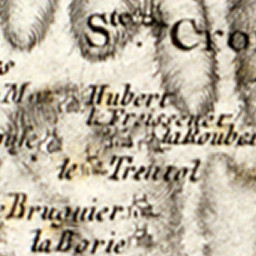 Ste. Cro
M. Hubert
le Freissenet
la Rouber
le Trentol
Bruguier
la Borie